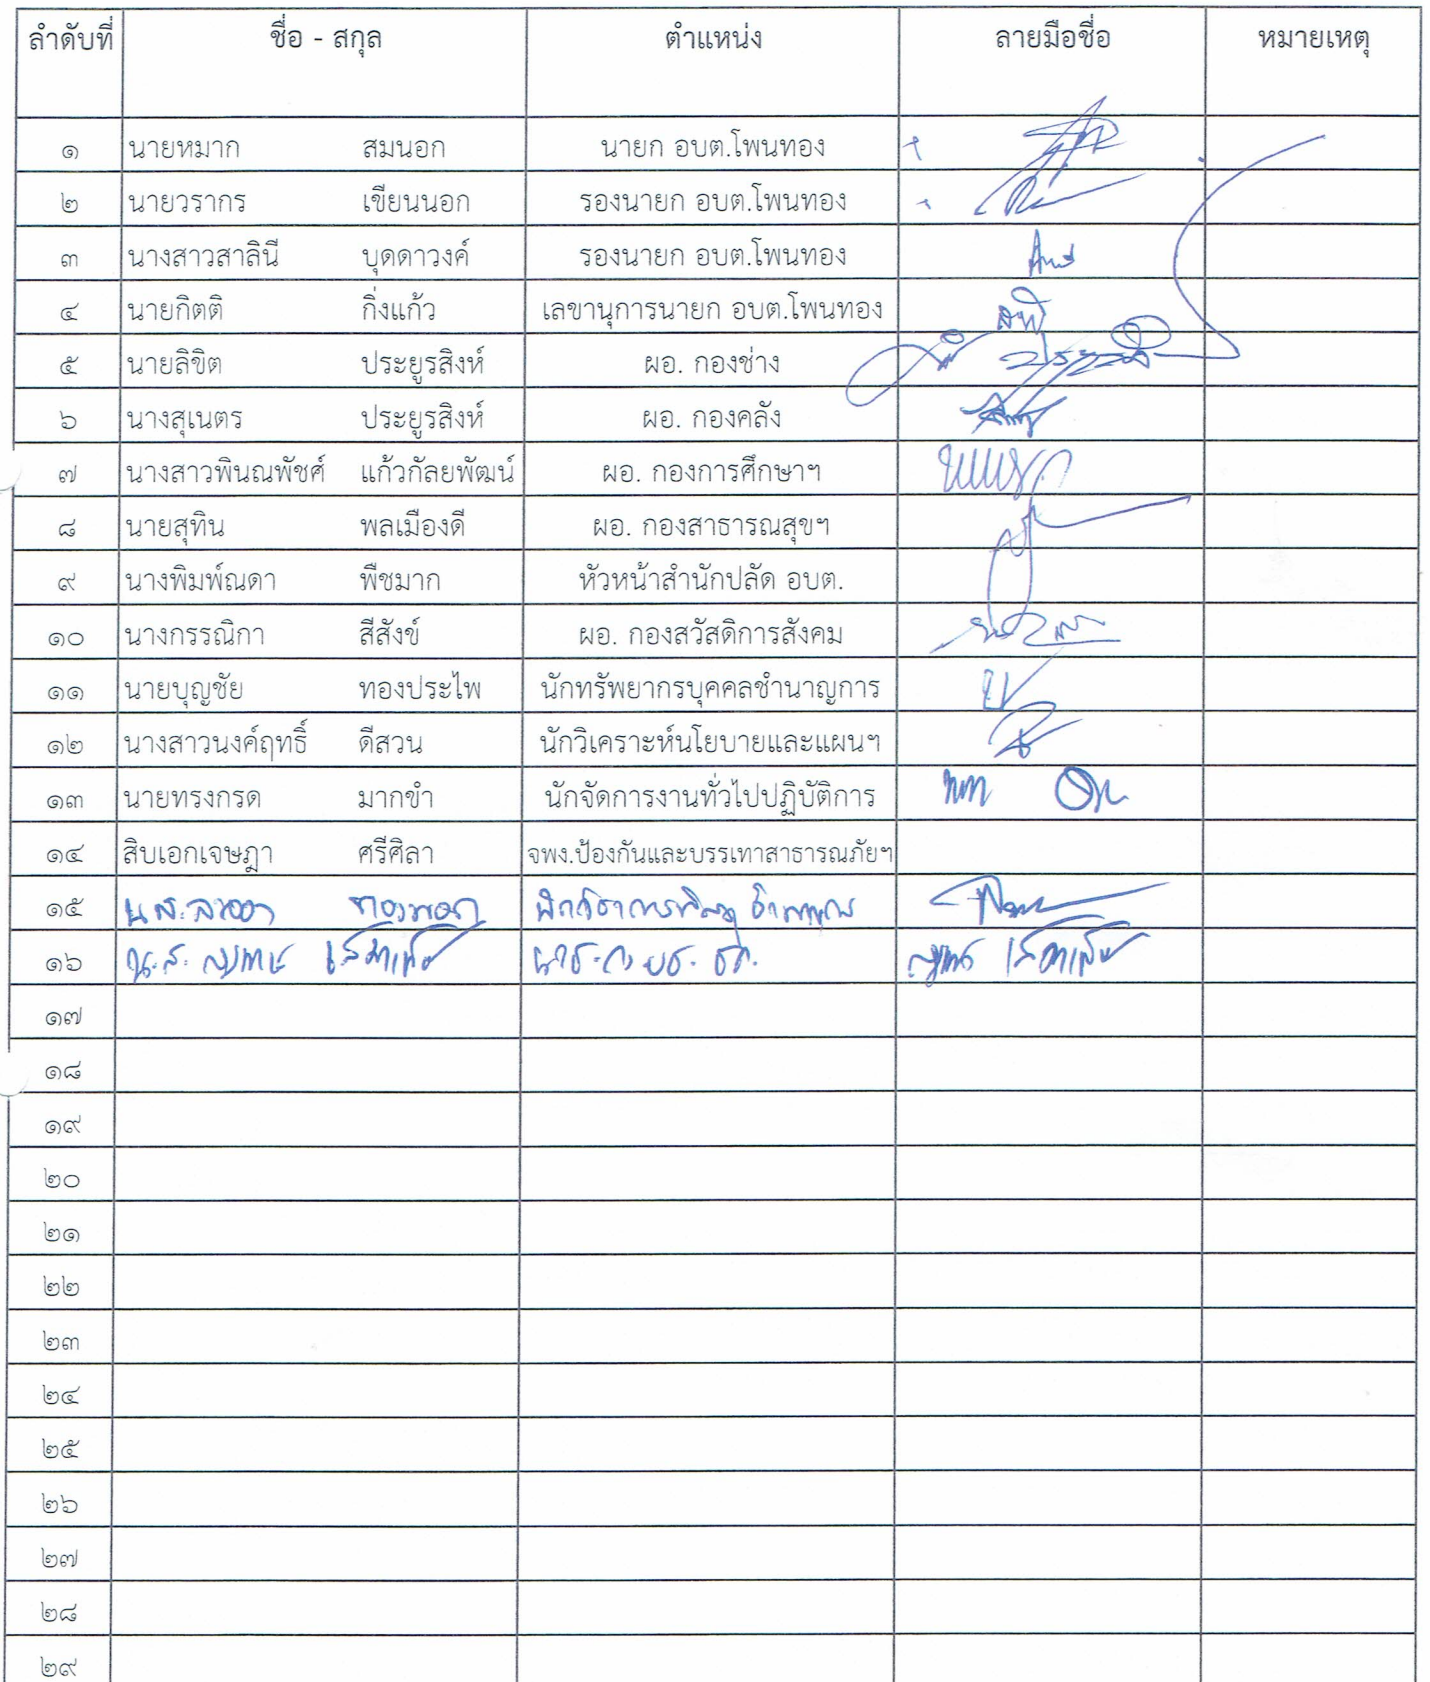 ลำดับที่ ชื่อ - สกุล ตำแหน่ง ลายมือชื่อ หมายเหตุ
๑ นายหมาก สมนอก นายก อบต.โพนทอง
๒ นายวรากร เขียนนอก รองนายก อบต.โพนทอง
๓ นางสาวสาลินี บุดดาวงค์ รองนายก อบต.โพนทอง
๔ นายกิตติ กิ่งแก้ว เลขานุการนายก อบต.โพนทอง
๕ นายลิขิต ประยูรสิงห์ ผอ. กองช่าง
๖ นางสุเนตร ประยูรสิงห์ ผอ. กองคลัง
๗ นางสาวพินณพัชศ์ แก้วกัลยพัฒน์ ผอ. กองการศึกษาฯ
๘ นายสุทิน พลเมืองดี ผอ. กองสาธารณสุขฯ
๙ นางพิมพ์ณดา พืชมาก หัวหน้าสำนักปลัด อบต.
๑๐ นางกรรณิกา สีสังข์ ผอ. กองสวัสดิการสังคม
๑๑ นายบุญชัย ทองประไพ นักทรัพยากรบุคคลชำนาญการ
๑๒ นางสาวนงค์ฤทธิ์ ดีสวน นักวิเคราะห์นโยบายและแผนฯ
๑๓ นายทรงกรด มากขำ นักจัดการงานทั่วไปปฏิบัติการ
๑๔ สิบเอกเจษฎา ศรีศิลา จพง.ป้องกันและบรรเทาสาธารณภัยฯ
๑๕ น.ส.
๑๖ น.ส.
๑๗
๑๘
๑๙
๒๐
๒๑
๒๒
๒๓
๒๔
๒๕
๒๖
๒๗
๒๘
๒๙